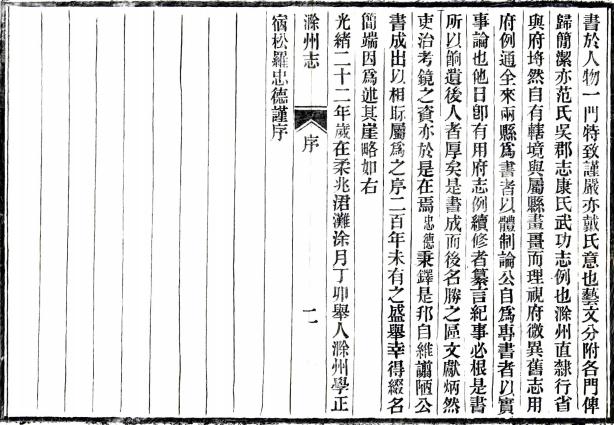 書於人物一門特致謹嚴亦戴氏意也藝文分附各門俾
歸簡潔亦范氏吳郡志康氏武功志例也滁州直隸行省
與府埒然自有轄境與屬縣畫畺而理視府微異舊志用
府例通全來兩縣爲書者以體制論公自爲專書者以實
事論也他日卽有用府志例續修者纂言紀事必根是書
所以餉遺後人者厚矣是書成而後名勝之區文獻炳然
吏治考鏡之資亦於是在焉忠德秉鐸是邦自維譾陋公
書成出以相眎屬爲之序二百年未有之盛舉幸得綴名
簡端因爲述其崖略如右
光緒二十二年歲在柔兆涒灘涂月丁卯舉人滁州學正
滁州志
序
二
宿松羅忠德謹序